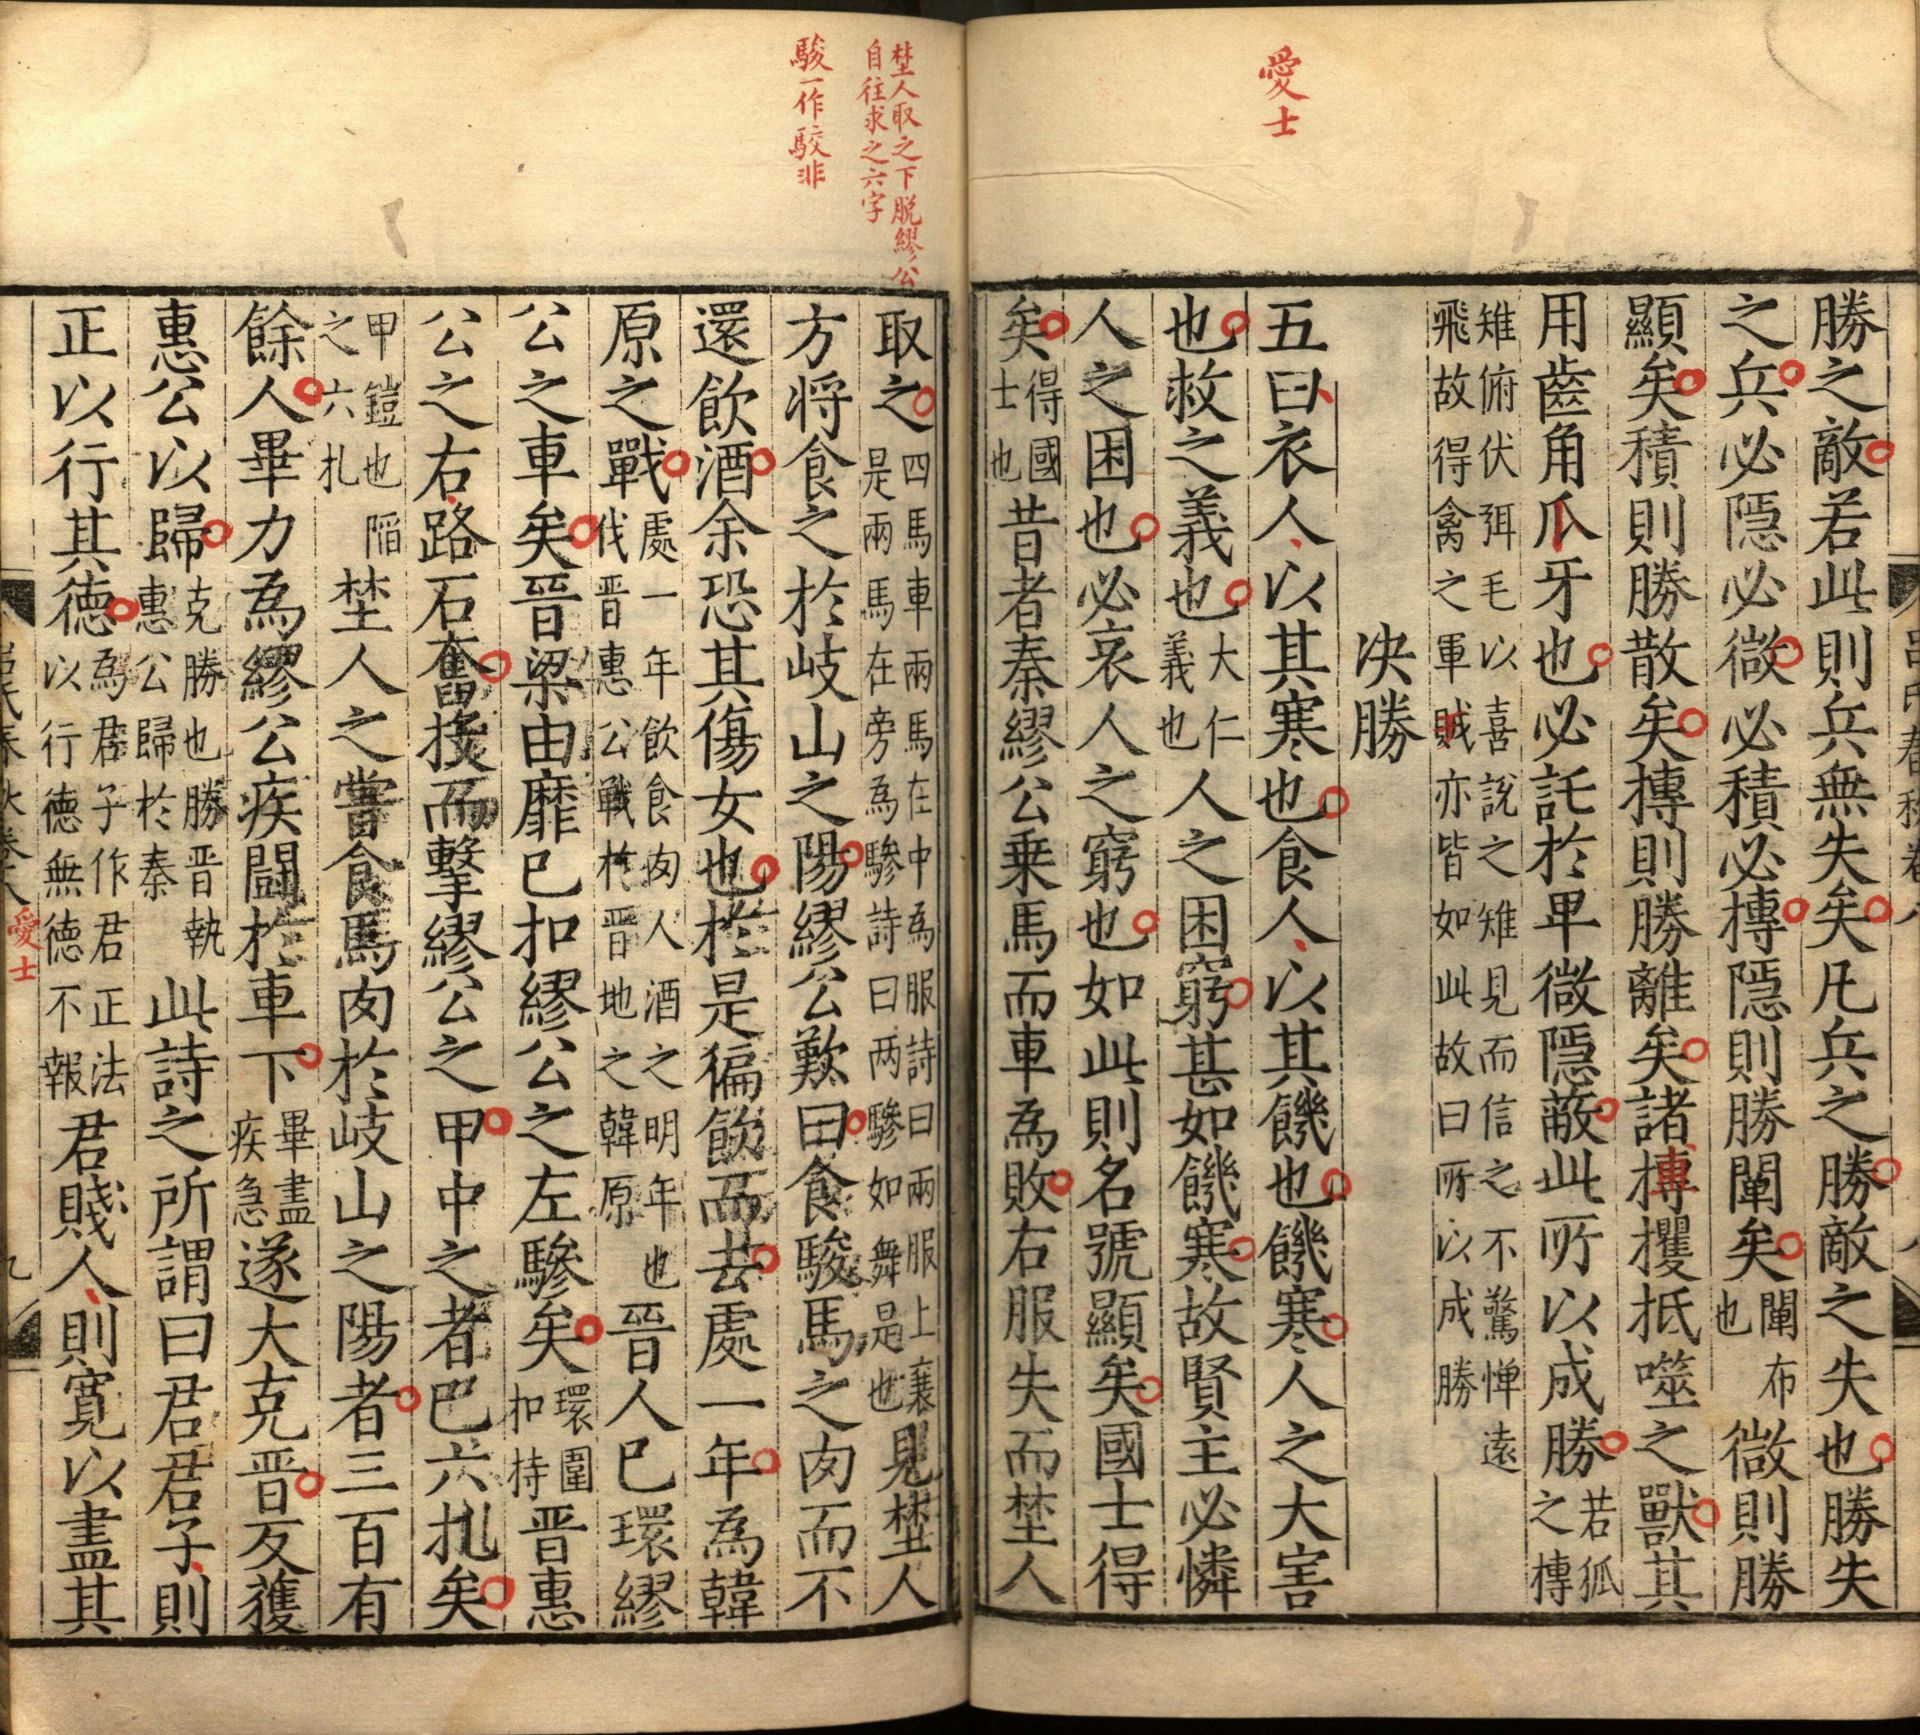 愛士
勝之敵若此則兵無失矣凡兵之勝敵之失也勝失
之兵必隱必微必積必摶隱則勝闡矣闡布也微則勝
顯矣積則勝散矣摶則勝離矣諸摶攫抵噬之獸其
用齒角爪牙也必託於卑微隱蔽此所以成勝若狐之摶
雉俯伏弭毛以喜說之雉見而信之不驚憚遠
飛故得禽之軍賊亦皆如此故曰所以成勝
决勝
五曰衣人以其寒也食人以其饑也饑寒人之大害
也救之義也大仁義也人之困窮甚如饑寒故賢主必憐
人之困也必哀人之窮也如此則名號顯矣國士得
矣得國士也昔者秦繆公乗馬而車為敗右服失而埜人
埜人取之下脱繆公
自往求之六字
駿一作駮非
取之四馬車兩馬在中為服詩曰兩服上襄
是兩馬在旁為驂詩曰两驂如舞是也見埜人
方将食之於岐山之陽繆公歎曰食駿馬之肉而不
還飲酒余恐其傷女也於是徧飲而去處一年為韓
原之戰處一年飲食肉人酒之明年也
伐晋惠公戰於晋地之韓原晉人已環繆
公之車矣晉梁由靡已扣繆公之左驂矣環圍扣持晋惠
公之右路石奮投而擊繆公之甲中之者已六札矣
甲鎧也陷之六札埜人之嘗食馬肉於岐山之陽者三百有
餘人畢力為繆公疾鬪於車下畢盡疾急遂大克晋反獲
惠公以歸克勝也勝晋執惠公歸於秦此詩之所謂曰君君子則
正以行其徳為君子作君正法以行徳無徳不報君賤人則寛以盡其
呂氏春秋卷八
愛士
九